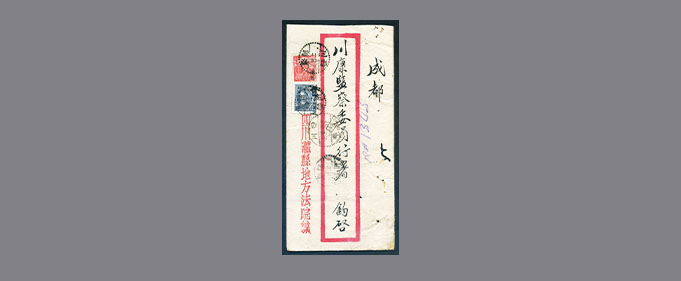 成都
川康监察委员行署 鈞啓
四川瀘縣地方法院緘